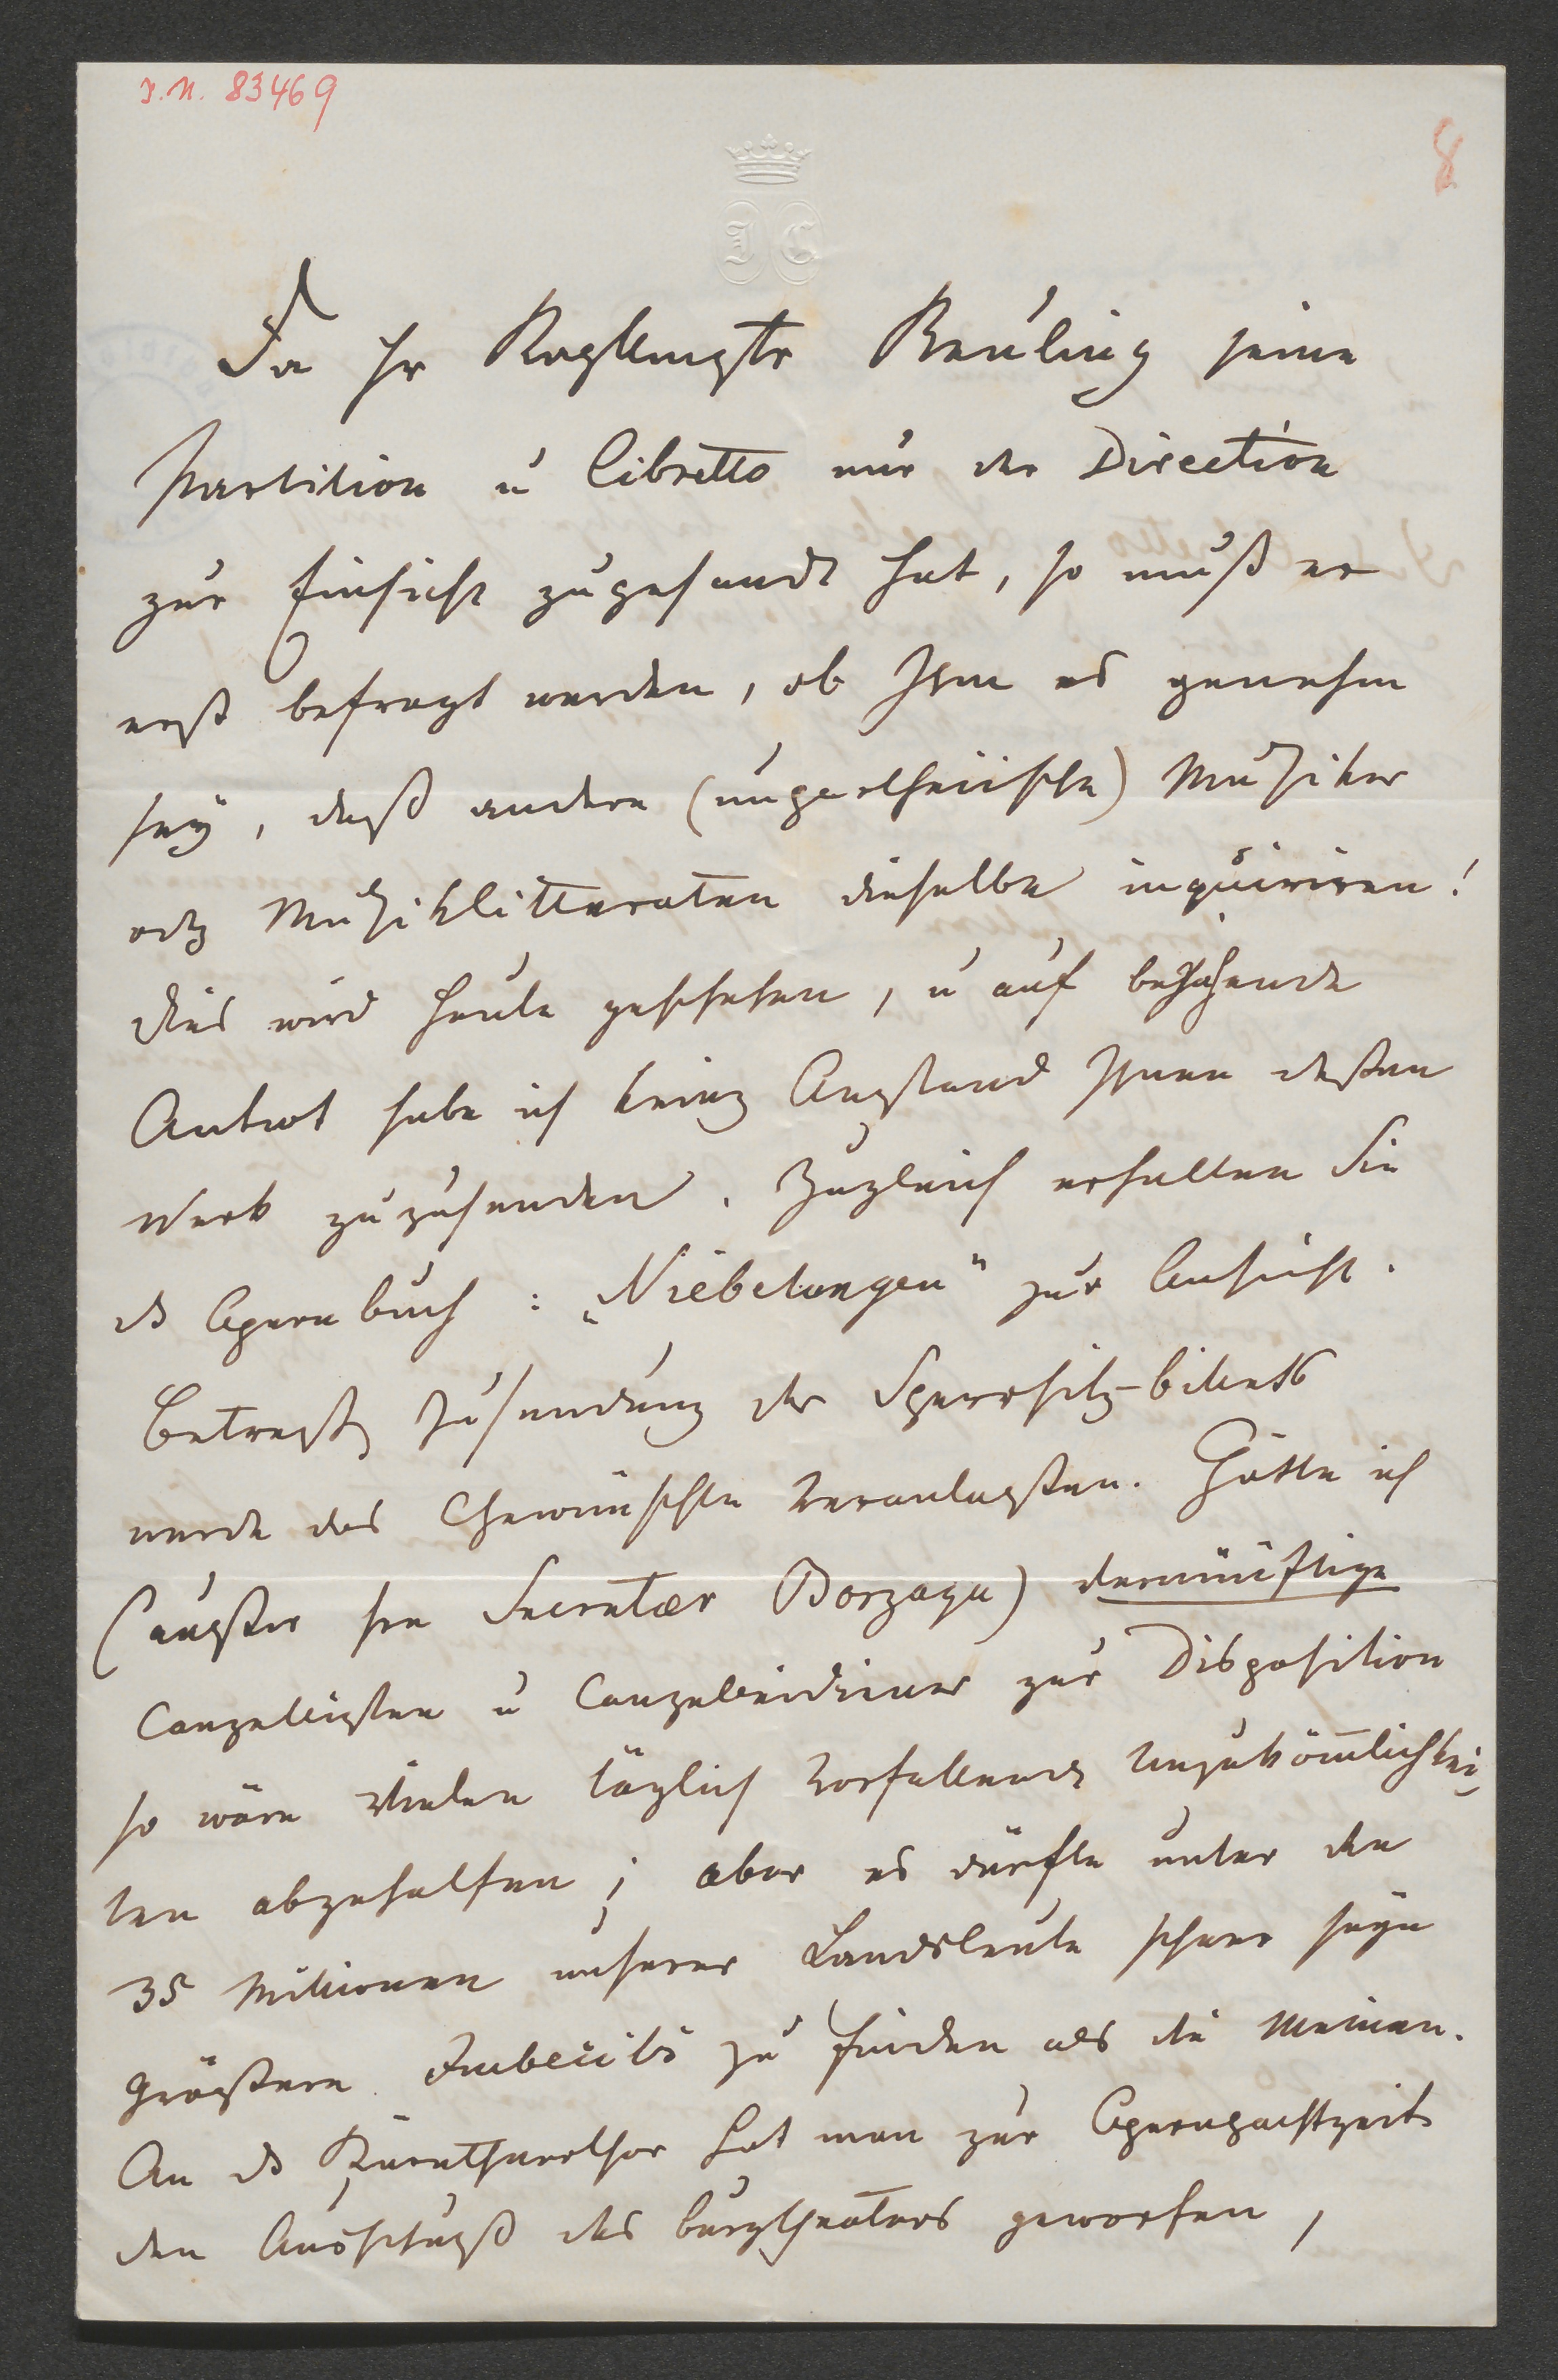 I.N. 83469
8
I C
Da Hr Kaplmstr Reuling seine
Partition u Libretto nur der Direction
zur Einsicht zugesandt hat, so muß er
erst befragt werden, ob Ihm es genehm
sey, daß andere (unpartheiische) Musiker
od Musiklitteraten dieselbe inquiriren!
Dies wird heute geschehen, u auf bejahende
Antwot habe ich keinen Anstand Ihnen dessen
Werk zuzusenden. Zugleich erhalten Sie
ds Opernbuch: „Niebelungen" zur Ansicht.
Betreffs Zusendung der Sperrsitz-billets
werde das Gewünschte veranlassen. Hätte ich
(ausser Hrn Secretær Borzaga) vernünftige
Canzellisten u Canzleidiener zur Disposition
so wäre vielen täglich vorfallenden Unzukömlichkei-
ten abgeholfen; aber es dürfte unter den
35 Millionen unserer Landsleute schwer seyn
größere Imbecils zu finden als die Meinen.
An ds Kärnthnerthor hat man zur Opernpachtzeit
den Ausschuß des Burgtheaters geworfen,